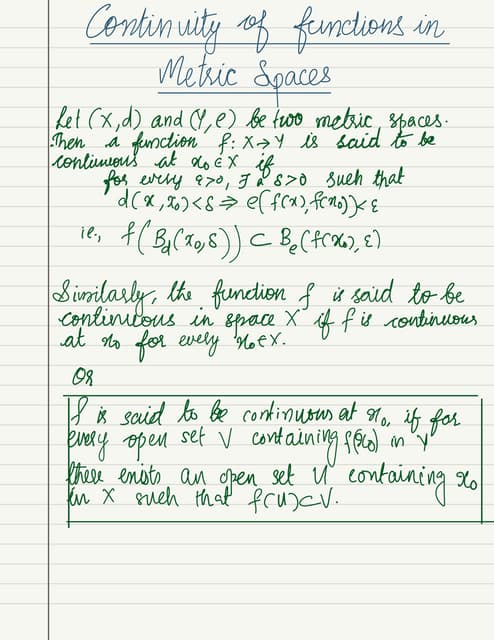 Continuity of functions in
Metric Spaces
Let (X,d) and (Y,e) be two metric spaces.
Then a function f: X→Y is said to be
continuous at x₀∈X if
for every ε>0, ∃ a δ>0 such that
d(x,x₀)<δ ⇒ e(f(x),f(x₀))<ε
ie., f(B_d(x₀,δ)) ⊂ B_e(f(x₀),ε)
Similarly, the function f is said to be
continuous in space X if f is continuous
at x₀ for every x₀∈X.
OR
f is said to be continuous at x₀, if for
every open set V containing f(x₀) in Y
there exists an open set U containing x₀
in X such that f(U)⊂V.